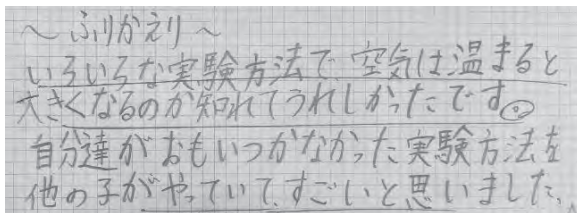 ～ふりかえり～
いろいろな実験方法で、空気は温まると
大きくなるのが知れてうれしかったです☺
自分達がおもいつかなかった実験方法を
他の子がやっていて、すごいと思いました。